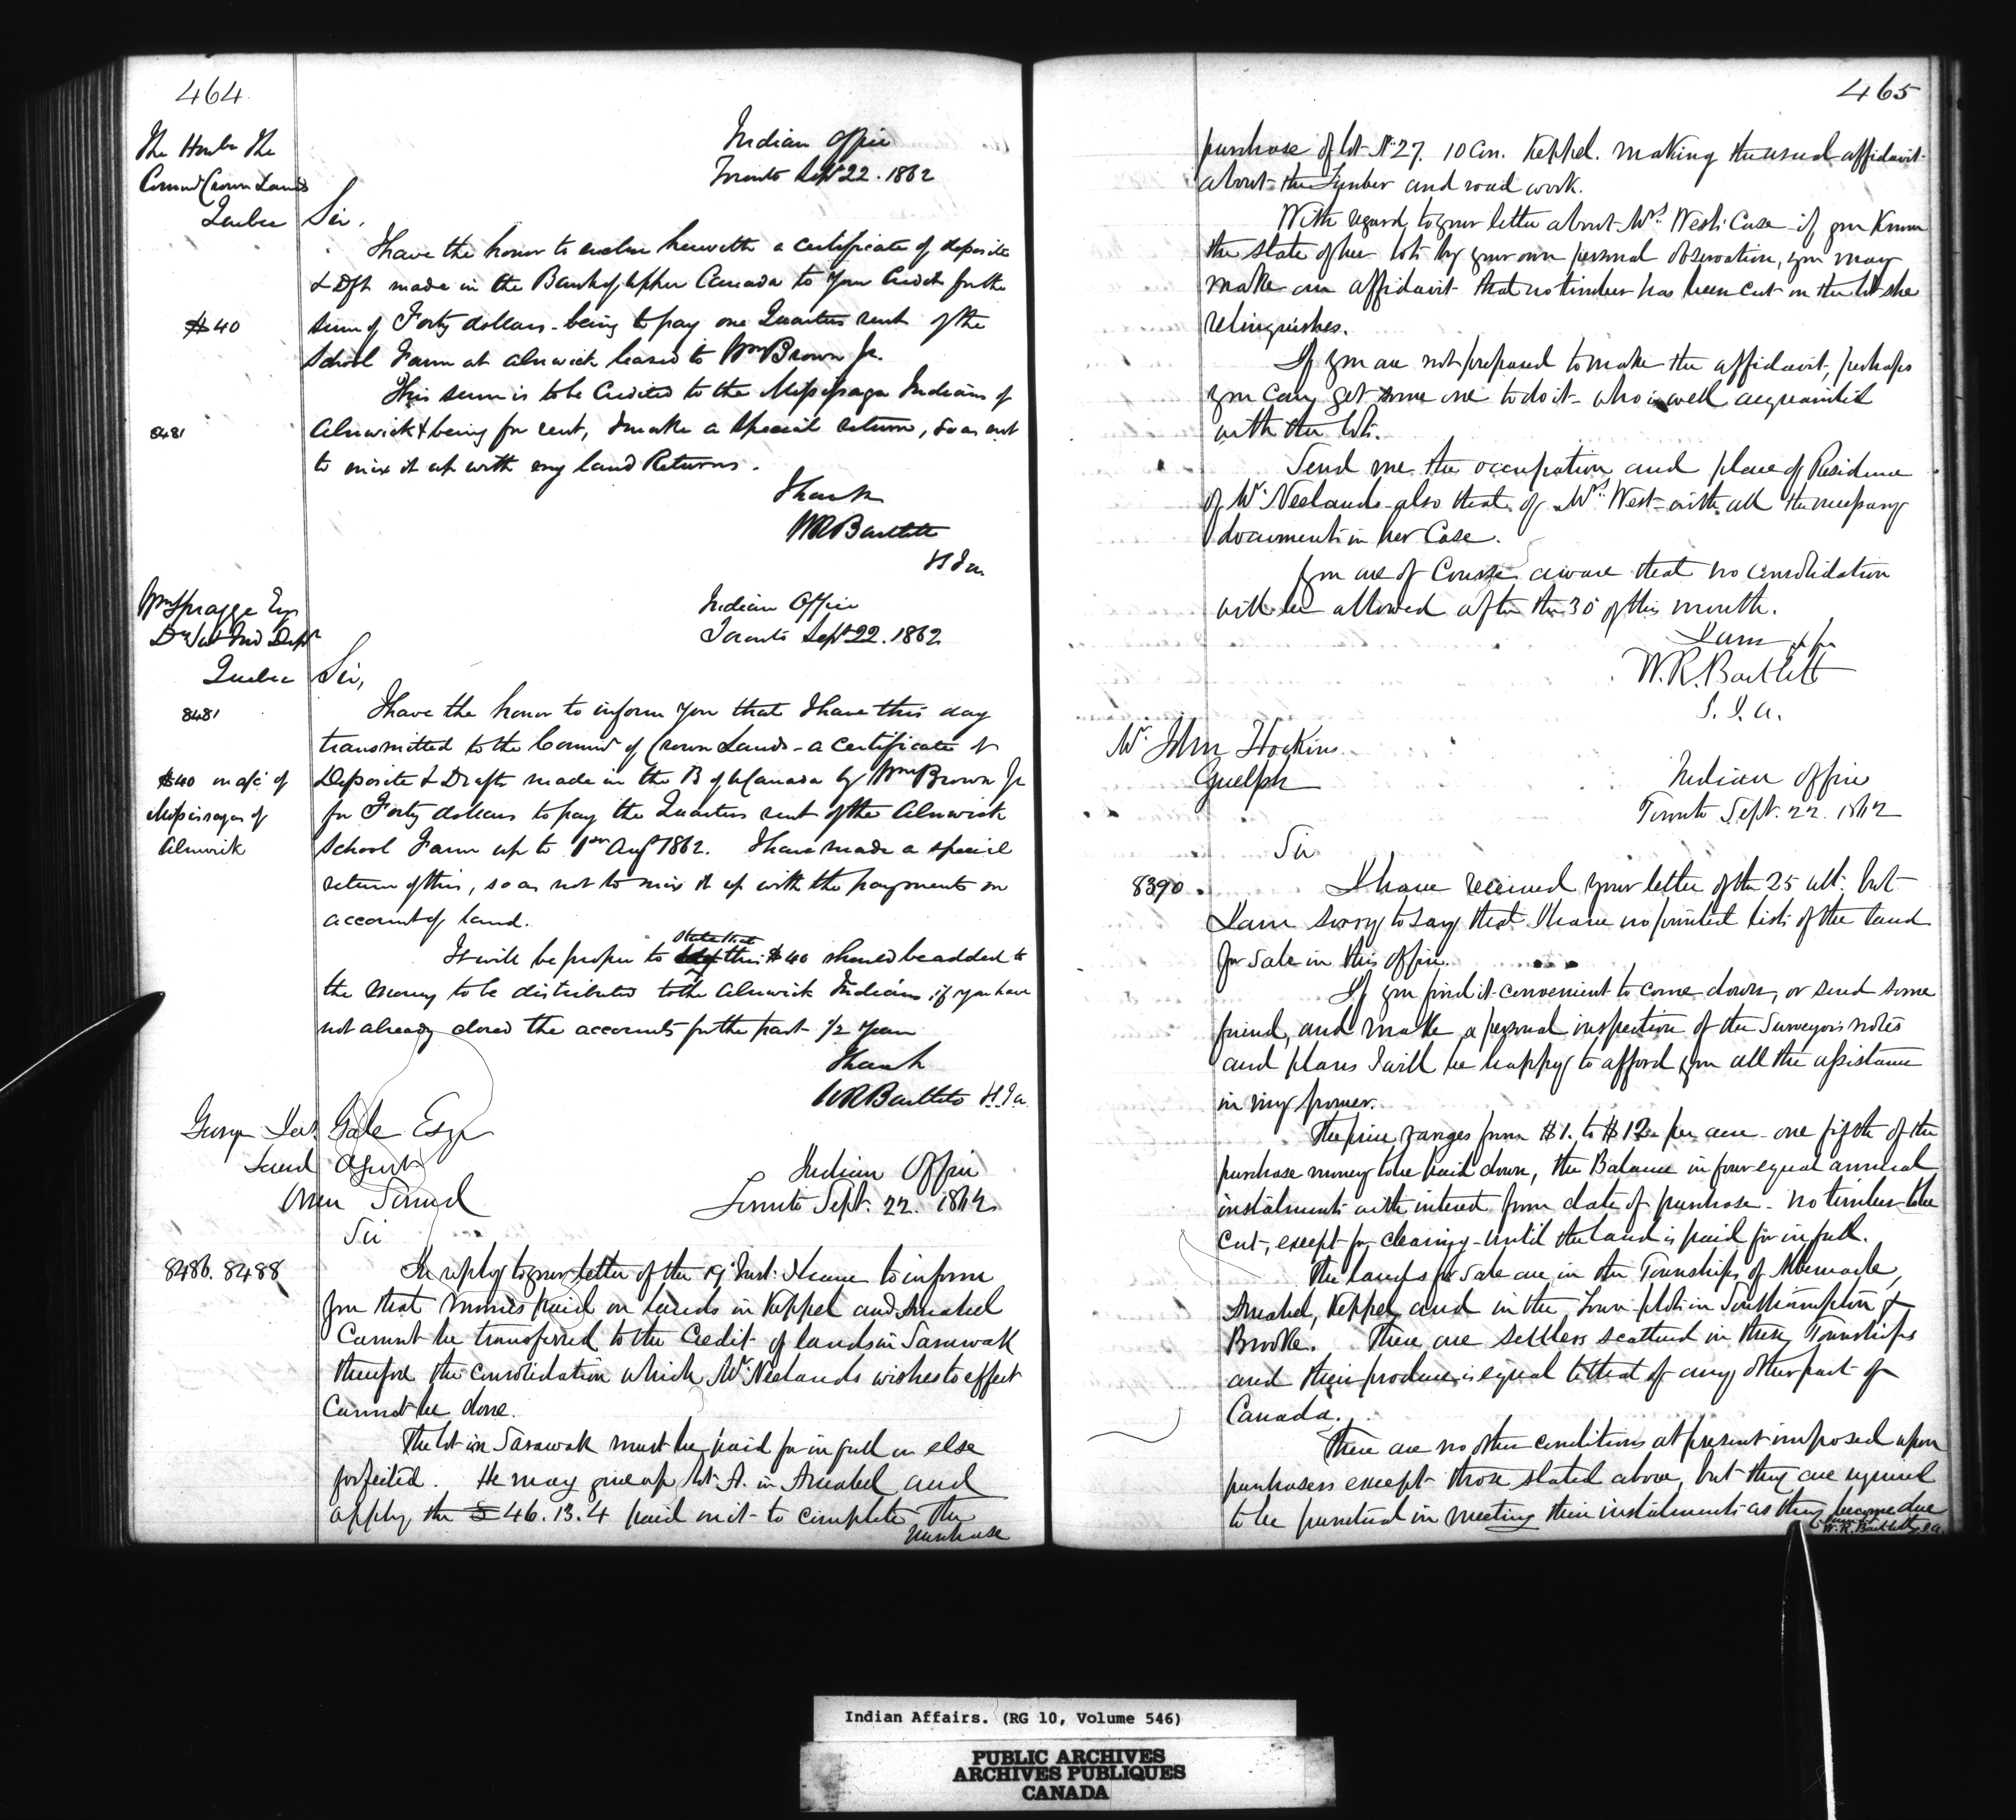 464
The Honble The
Commr Crown Lands
Quebec
Indian Office
Toronto Sept 22. 1862
Sir,
I have the honor to enclose herewith a certificate of deposite
& Dft made in the Bank of Upper Canada to your Credit for the
$40
sum of Forty dollars - being to pay one Quarters rent of the
School Farm at Alnwick leased to Wm Brown Jr.
This sum is to be Credited to the Missisaga Indians of
8481
Alnwick & being for rent, I make a special return, so as not
to mix it up with my land Returns.
I have &c
WR Bartlett
Wm Spragge Esqr
Dy Supt Ind Dept
Quebec
Indian Office
Toronto Sept 22. 1862
Sir,
8481
I have the honor to inform you that I have this day
transmitted to the Commr of Crown Lands - a certificate of
$40 on a/c of
Missisagas of
Alnwick
Deposite & Draft made in the B of U Canada by Wm Brown Jr
for Forty dollars to pay the Quarters rent of the Alnwick
School Farm up to 1st Augt 1862. I have made a special
return of this, so as not to mix it up with the payments on
account of land.
It will be proper to state that this $40 should be added to
the money to be distributed to the Alnwick Indians if you have
not already closed the accounts for the past 1/2 year
I have &c
WR Bartlett
George Gale Esqr
Land Agent
Owen Sound
Indian Office
Toronto Sept. 22. 1862
Sir
8486. 8488
In reply to your letter of the 19 Inst. I have to inform
you that monies paid on lands in Keppel and Amabel
Cannot be transferred to the Credit of lands in Sarawak
therefore the consolidation which Mr. Neelands wishes to effect
Cannot be done.
The lot in Sarawak must be paid for in full or else
forfeited. He may give up lot A. in Amabel and
apply the 46.13.4 paid on it to complete the
purchase
465
purchase of lot No 27. 10 Con. Keppel. making the usual affidavit
about the Timber and road work.
With regard to your letter about Mrs West's Case - if you Know
the state of her lots by your own personal observation, you may
make an affidavit that no timber has been cut on the lot she
relinquishes.
If you are not prepared to make the affidavit, perhaps
you can get some one to do it - who is well acquainted
with the lots.
Send me the occupation and place of Residence
of Mr. Neelands also that of Mrs. West - with all the necessary
documents in her Case.
You are of Course aware that no consolidation
will be allowed after the 30 of this month.
I am &c
W. R. Bartlett
S. I. A.
Mr. John Hockins
Guelph
Indian Office
Toronto Sept. 22. 1862
Sir
8390.
I have received your letter of the 25 ult. but
I am sorry to say that I have no printed lists of the land
for sale in this office.
If you find it convenient to come down, or send some
friend, and make a personal inspection of the Surveyors notes
and plans I will be happy to afford you all the assistance
in my power.
The price ranges from $1. to $12 per acre - one fifth of the
purchase money to be paid down, the Balance in four equal annual
instalments with interest from date of purchase - no timber to be
cut, except for clearing - until the land is paid for in full.
The lands for sale are in the Townships of Albemarle,
Amabel, Keppel, and in the Town plots in Southampton &
Brooke. There are settlers scattered in these Townships
and their produce is equal to that of any other part of
Canada.
There are no other conditions at present imposed upon
purchasers except those stated above, but they are required
to be punctual in meeting their instalments as they become due
I am &c
W. R. Bartlett S.I.A.
Indian Affairs. (RG 10, Volume 546)
PUBLIC ARCHIVES
ARCHIVES PUBLIQUES
CANADA